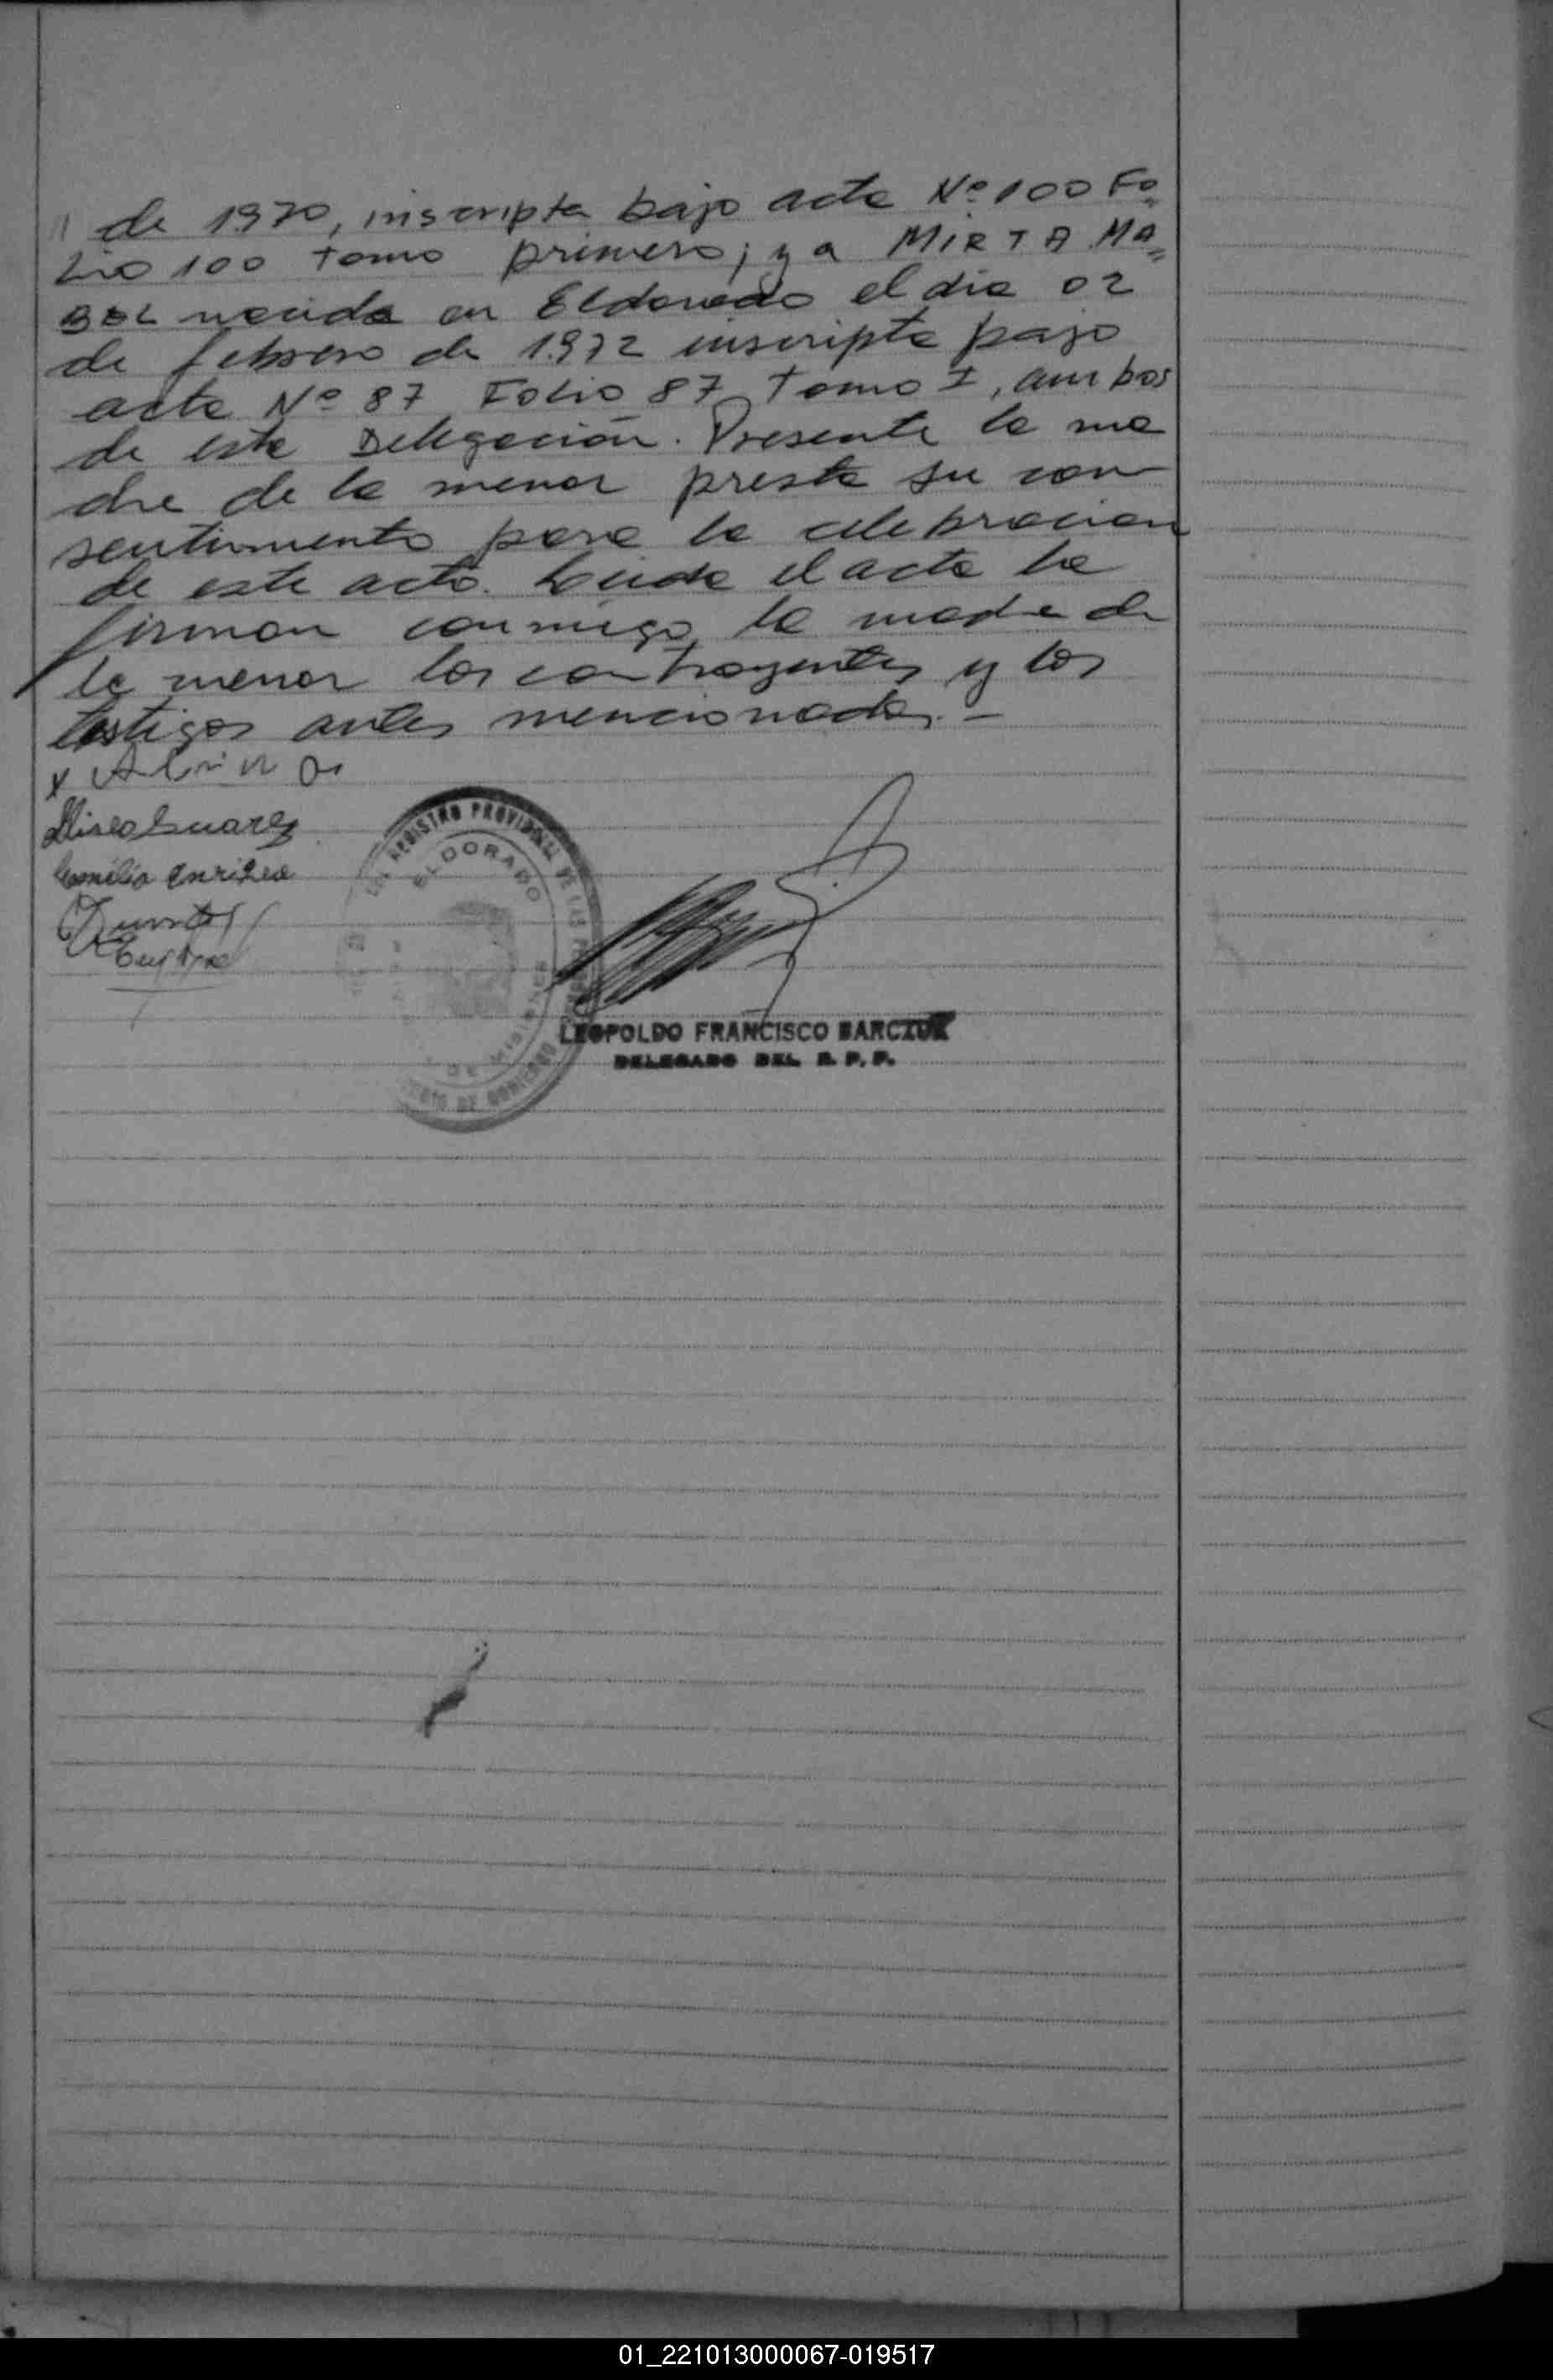 // de 1970, inscripta bajo acta Nº 100 Fo=
lio 100 tomo primero; y a MIRTA MA=
BEL nacida en Eldorado el dia 02
de febrero de 1972 inscripta bajo
acta Nº 87 Folio 87 Tomo I, ambos
de esta Delegación. Presente la ma
dre de la menor presta su con
sentimiento para la celebracion
de este acto. Leida el acta la
firman conmigo, la madre de
la menor los contrayentes y los
testigos antes mencionados.-
x Albina
Suarez
REGISTRO PROVINCIAL DE LAS
ELDORADO
MISIONES
DE GOBIERNO
LEOPOLDO FRANCISCO BARCZUK
DELEGADO DEL R. P. P.
01_221013000067-019517